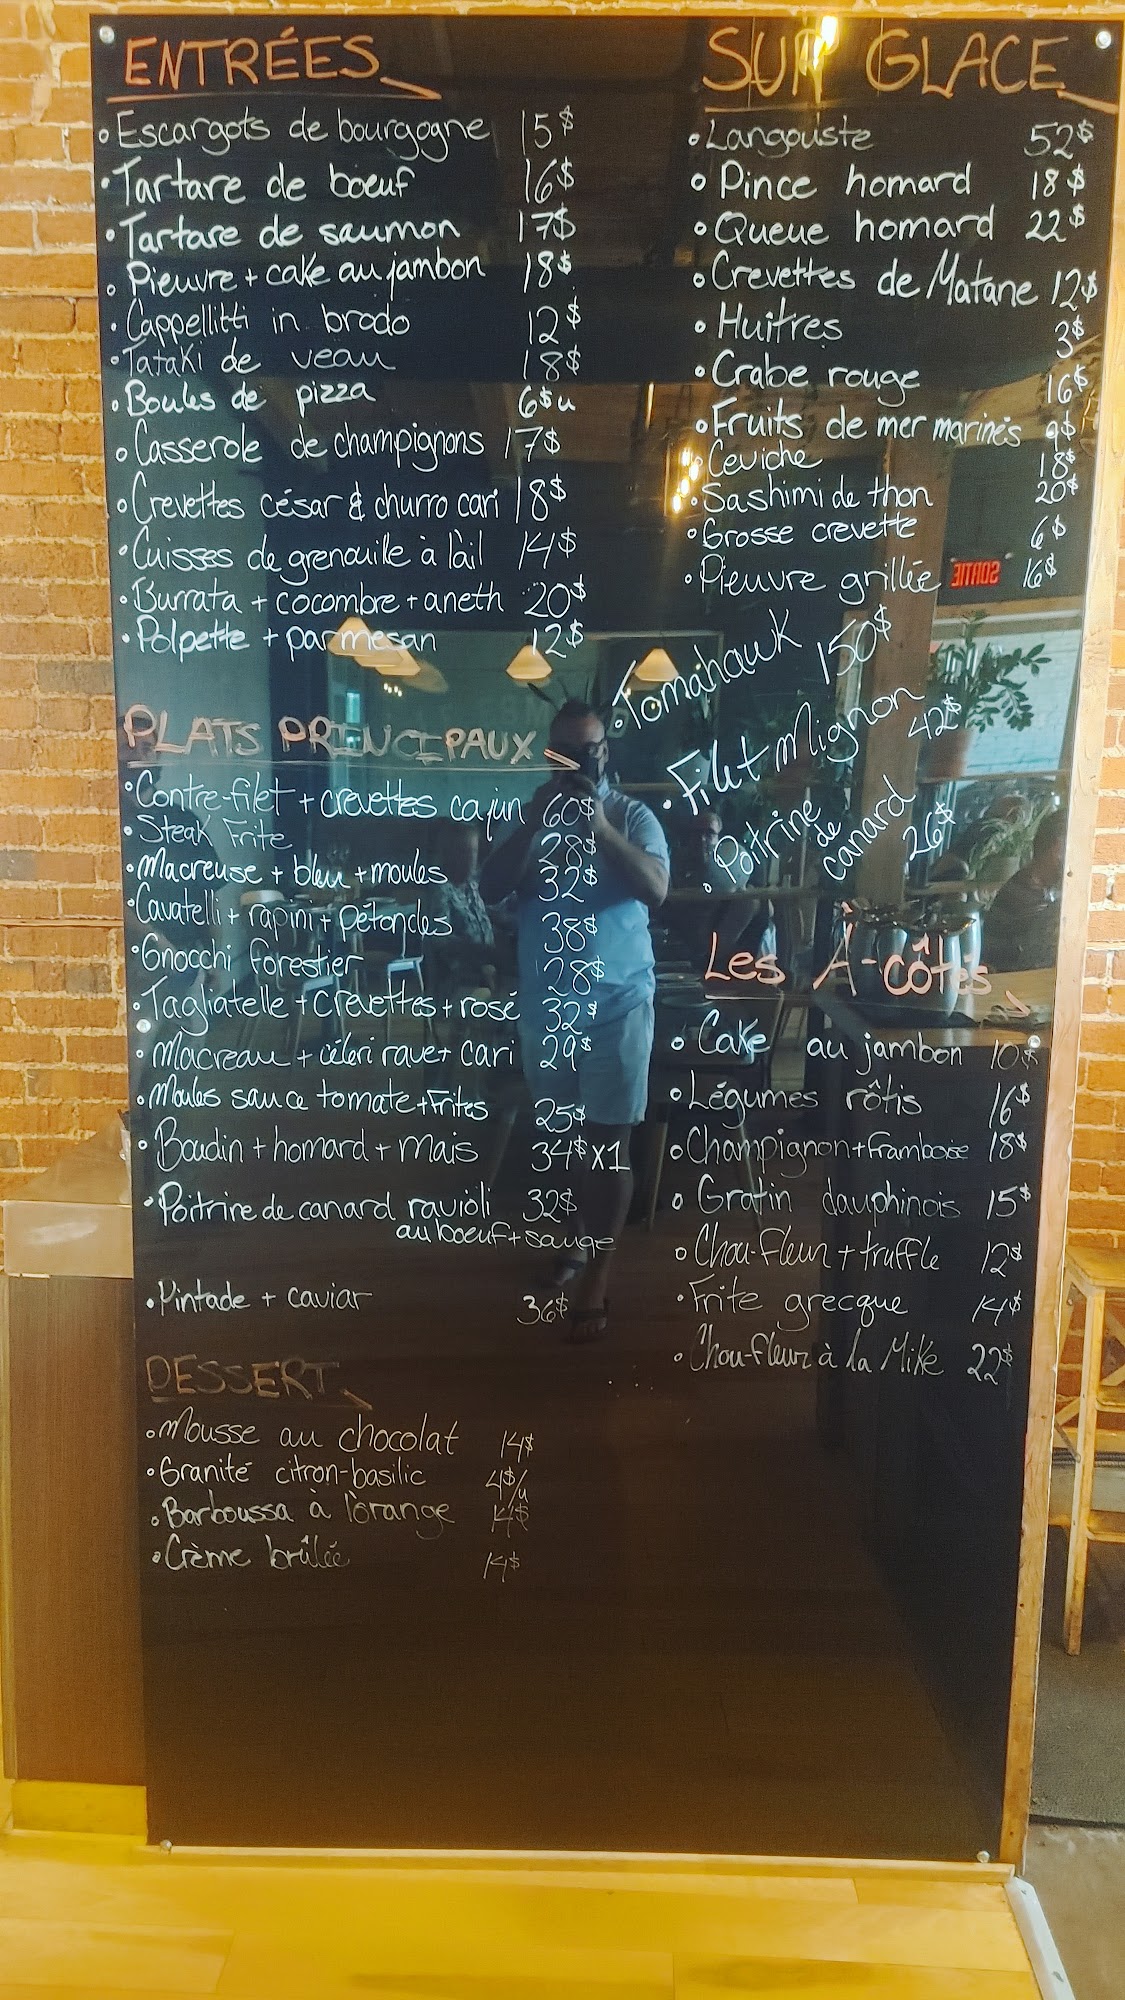 ENTRÉES
• Escargots de bourgogne 15$
• Tartare de boeuf 16$
• Tartare de saumon 17$
• Pieuvre + cake au jambon 18$
• Cappellitti in brodo 12$
• Tataki de veau 18$
• Boules de pizza 6$u
• Casserole de champignons 17$
• Crevettes césar & churro cari 18$
• Cuisses de grenouille à l'ail 14$
• Burrata + cocombre + aneth 20$
• Polpette + parmesan 12$
PLATS PRINCIPAUX
• Contre-filet + crevettes cajun 60$
• Steak Frite 28$
• Macreuse + bleu + moules 32$
• Cavatelli + rapini + pétoncles 38$
• Gnocchi forestier 28$
• Tagliatelle + crevettes + rosé 32$
• Macreau + céleri rave + cari 29$
• Moules sauce tomate + Frites 25$
• Boudin + homard + maïs 34$ x1
• Poitrine de canard ravioli 32$
au boeuf + sauge
• Pintade + caviar 36$
DESSERT
• Mousse au chocolat 14$
• Granité citron-basilic 4$/u
• Barboussa à l'orange 14$
• Crème brûlée 14$
SUR GLACE
• Langouste 52$
• Pince homard 18$
• Queue homard 22$
• Crevettes de Matane 12$
• Huîtres 3$
• Crabe rouge 16$
• Fruits de mer marinés 9$
• Ceviche 18$
• Sashimi de thon 20$
• Grosse crevette 6$
• Pieuvre grillée 16$
SORTIE
• Tomahawk 150$
• Filet Mignon 42$
• Poitrine
de
canard 26$
Les À-côtés
• Cake au jambon 10$
• Légumes rôtis 16$
• Champignon + framboise 18$
• Gratin dauphinois 15$
• Chou-fleur + truffle 12$
• Frite grecque 14$
• Chou-fleur à la Mike 22$